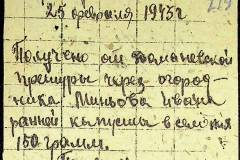 25 февраля 1943 г
Получено от Доманевской
претуры через огород-
ника Миньова Ивана
ранней капусты в семенах
150 грамм.